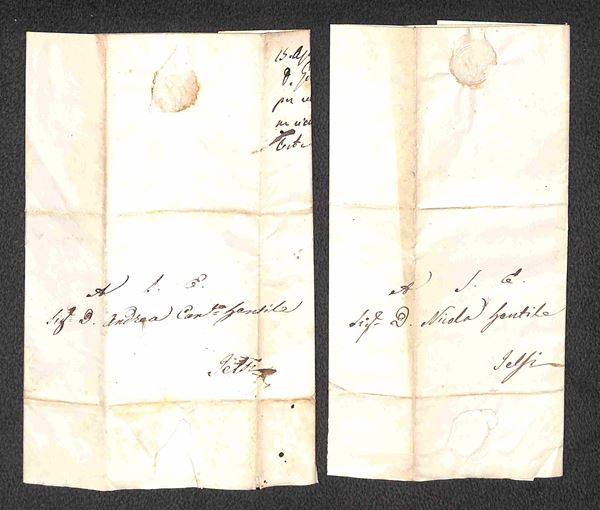 13
D.
per
A S. E.
Sigr. D. Andrea Can.co Gentile
Jelsi
A S. E.
Sigr. D. Nicola Gentile
Jelsi